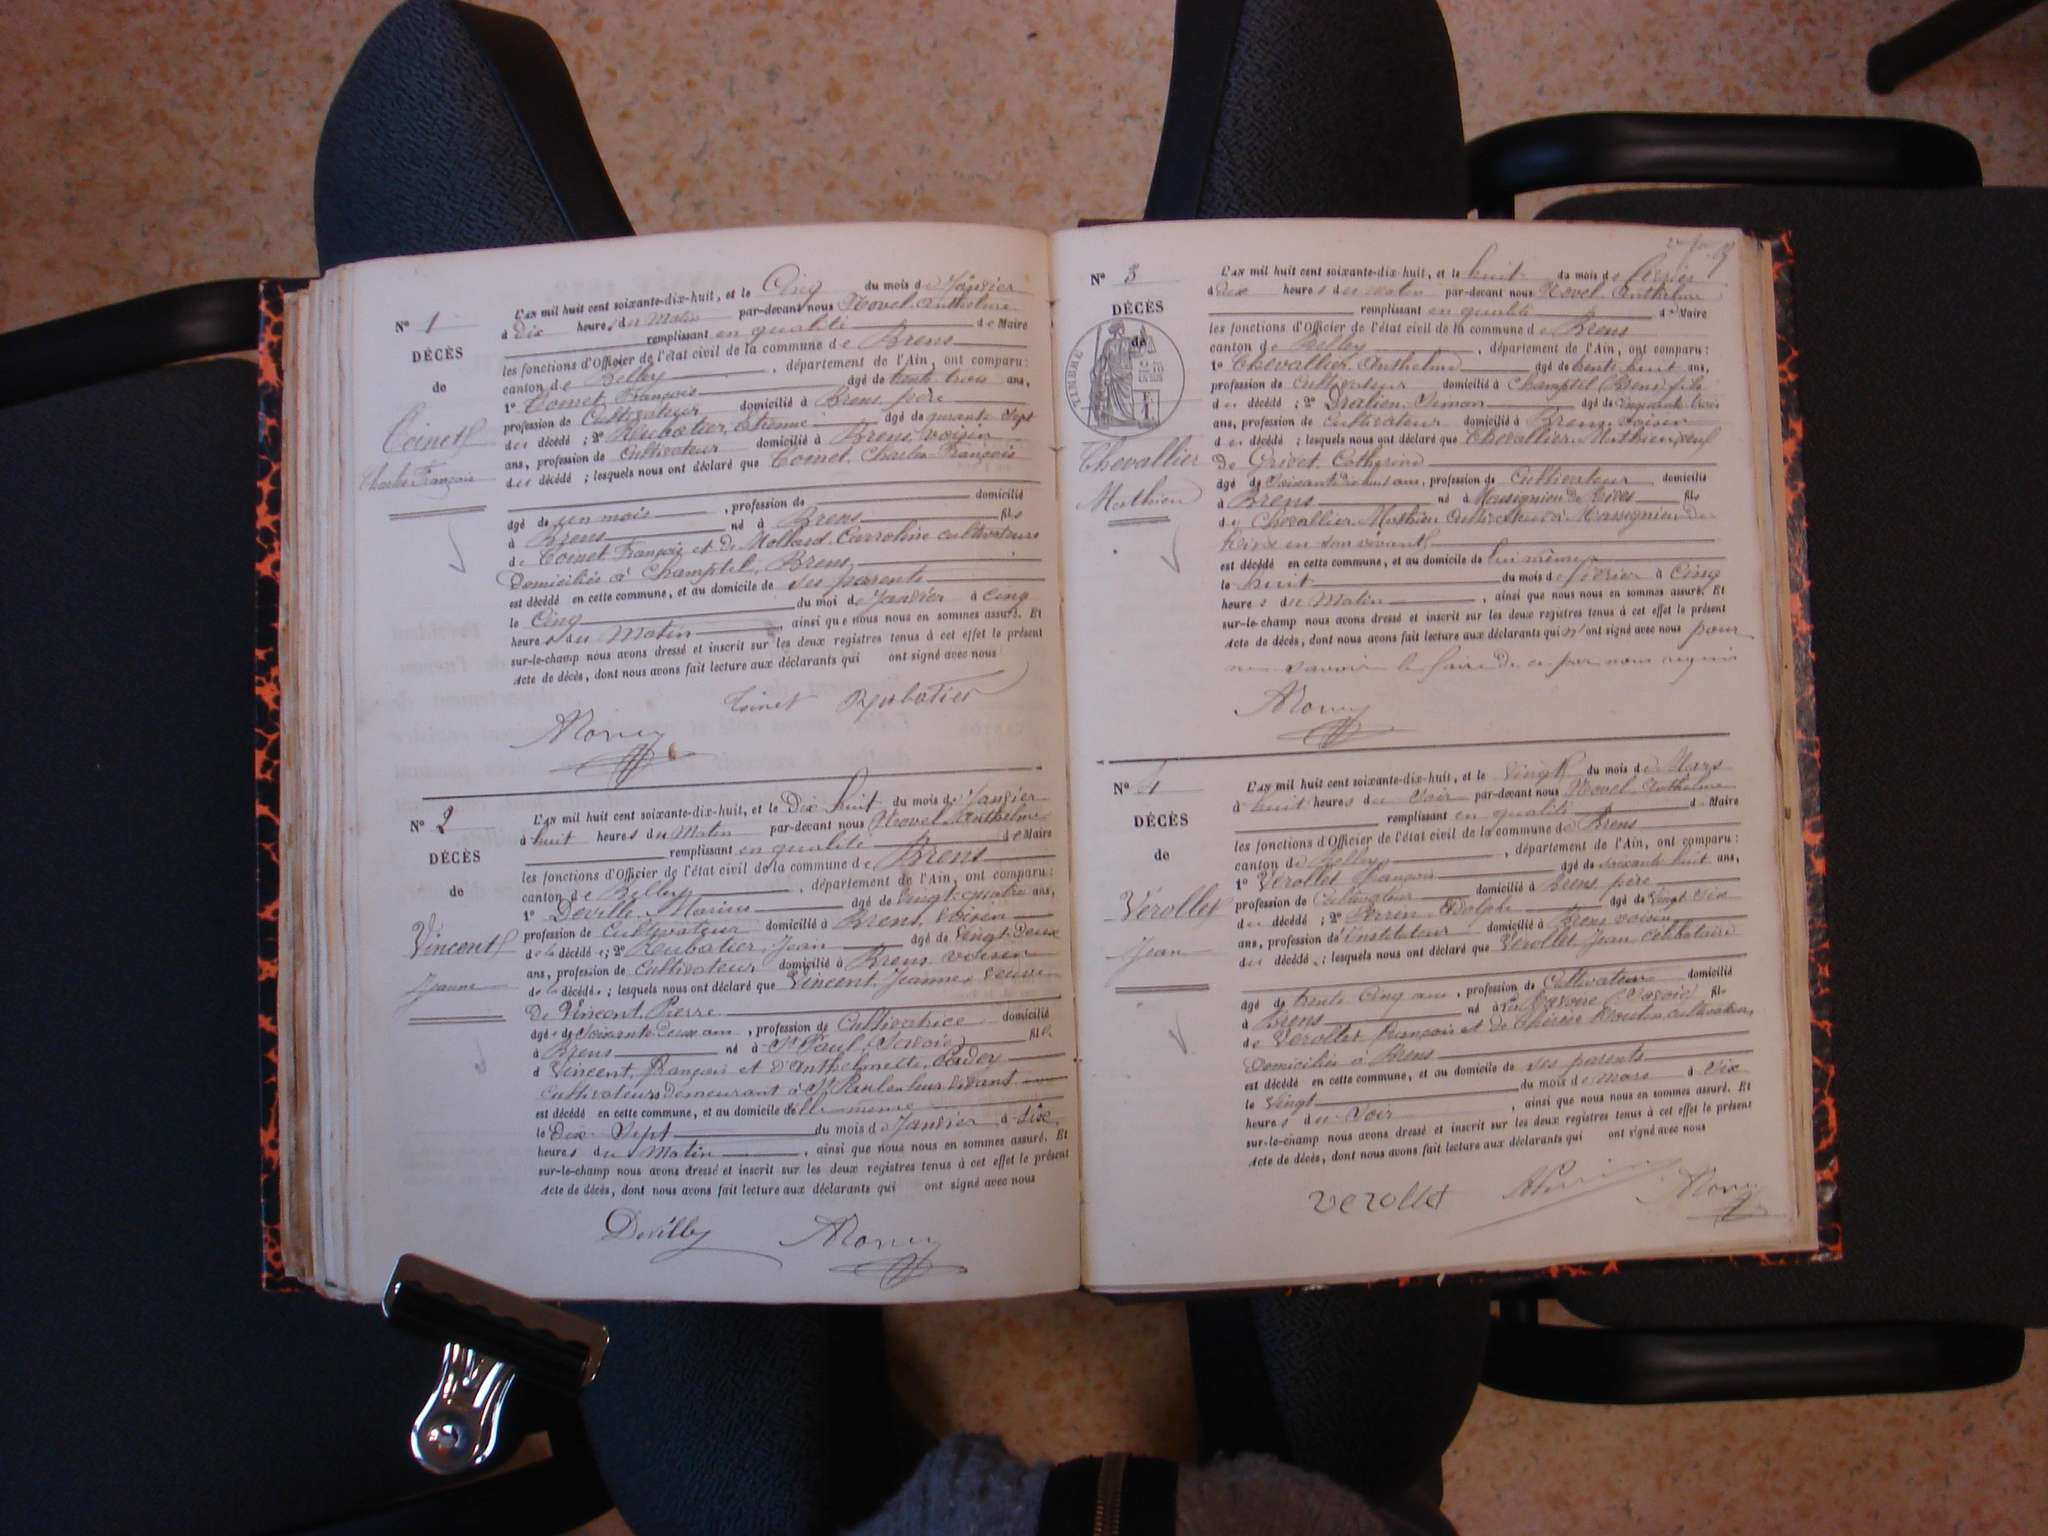 N° 1
DÉCÈS
de
Coinet
Charles François
L'AN mil huit cent soixante-dix-huit, et le Cinq du mois de Janvier
à Dix heures du Matin par-devant nous Novel Anthelme
remplissant en qualité de Maire
les fonctions d'Officier de l'état civil de la commune de Brens
canton de Belley, département de l'Ain, ont comparu:
1° Coinet François âgé de trente trois ans,
profession de Cultivateur domicilié à Brens père
du décédé; 2° Rubatier Etienne âgé de quarante sept
ans, profession de Cultivateur domicilié à Brens, voisin
du décédé; lesquels nous ont déclaré que Coinet Charles François
âgé de un mois, profession de domicilié
à Brens né à Brens fils
de Coinet François et de Mollard Carroline cultivateurs
Domiciliés à Champtel, Brens,
est décédé en cette commune, et au domicile de ses parents
le Cinq du mois de Janvier à cinq
heures du Matin, ainsi que nous nous en sommes assuré. Et
sur-le-champ nous avons dressé et inscrit sur les deux registres tenus à cet effet le présent
Acte de décès, dont nous avons fait lecture aux déclarants qui ont signé avec nous
Coinet Rubatier
N° 2
DÉCÈS
de
Vincent
Jeanne
L'AN mil huit cent soixante-dix-huit, et le Dix huit du mois de Janvier
à huit heures du Matin par-devant nous Novel Anthelme
remplissant en qualité de Maire
les fonctions d'Officier de l'état civil de la commune de Brens
canton de Belley, département de l'Ain, ont comparu:
1° Deville Marius âgé de vingt quatre ans,
profession de Cultivateur domicilié à Brens, voisin
de la décédée; 2° Rubatier Jean âgé de vingt deux
ans, profession de cultivateur domicilié à Brens voisin
de la décédée; lesquels nous ont déclaré que Vincent Jeanne veuve
de Vincent Pierre
âgée de soixante deux ans, profession de Cultivatrice domicilié
à Brens né à St Paul (Savoie) fille
d Vincent François et d'Anthelmette
cultivateurs demeurant à St Paul en leur vivant
est décédé en cette commune, et au domicile d'elle même
le Dix Sept du mois de Janvier à Six
heures du Matin, ainsi que nous nous en sommes assuré. Et
sur-le-champ nous avons dressé et inscrit sur les deux registres tenus à cet effet le présent
Acte de décès, dont nous avons fait lecture aux déclarants qui ont signé avec nous
N° 3
DÉCÈS
de
TIMBRE
Chevallier
Mathieu
L'AN mil huit cent soixante-dix-huit, et le huit du mois de
à Dix heures du matin par-devant nous Novel Anthelme
remplissant en qualité de Maire
les fonctions d'Officier de l'état civil de la commune de Brens
canton de Belley, département de l'Ain, ont comparu:
1° Chevallier Anthelme âgé de trente huit ans,
profession de Cultivateur domicilié à Champtel (Brens) fils
du décédé; 2° Simon âgé de cinquante trois
ans, profession de cultivateur domicilié à Brens voisin
du décédé; lesquels nous ont déclaré que Chevallier Mathieu veuf
de Grivet Catherine
âgé de soixante dix huit ans, profession de Cultivateur domicilié
à Brens né à Massignieu de Rives fils
de Chevallier Mathieu Cultivateur à Massignieu de
Rives en son vivant
est décédé en cette commune, et au domicile de lui même
le huit du mois de février à Cinq
heures du Matin, ainsi que nous nous en sommes assuré. Et
sur-le-champ nous avons dressé et inscrit sur les deux registres tenus à cet effet le présent
Acte de décès, dont nous avons fait lecture aux déclarants qui n'ont signé avec nous pour
ne savoir le faire de ce par nous requis
N° 4
DÉCÈS
de
Verollet
Jean
L'AN mil huit cent soixante-dix-huit, et le vingt du mois de Mars
à huit heures du Soir par-devant nous Novel Anthelme
remplissant en qualité de Maire
les fonctions d'Officier de l'état civil de la commune de Brens
canton de Belley, département de l'Ain, ont comparu:
1° Verollet François âgé de soixante huit ans,
profession de Cultivateur domicilié à Brens, père
du décédé; 2° Perrin Adolphe âgé de vingt six
ans, profession d'instituteur domicilié à Brens voisin
du décédé; lesquels nous ont déclaré que Verollet Jean célibataire
âgé de trente cinq ans, profession de Cultivateur domicilié
à Brens né à (Savoie) fils
de Verollet François et de Thérèse cultivateurs
Domiciliés à Brens
est décédé en cette commune, et au domicile de ses parents
le vingt du mois de mars à Six
heures du Soir, ainsi que nous nous en sommes assuré. Et
sur-le-champ nous avons dressé et inscrit sur les deux registres tenus à cet effet le présent
Acte de décès, dont nous avons fait lecture aux déclarants qui ont signé avec nous
verollet